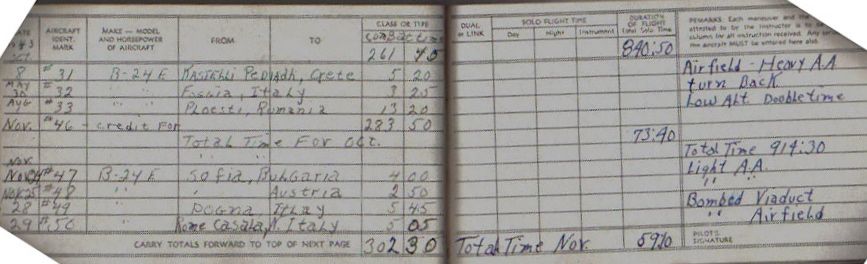 DATE AIRCRAFT IDENT. MARK MAKE — MODEL AND HORSEPOWER OF AIRCRAFT FROM TO CLASS OR TYPE DUAL or LINK SOLO FLIGHT TIME Day Night Instrument DURATION OF FLIGHT Total Solo Time REMARKS: Each maneuver and the
attested to by the instructor
column for all instruction received. Any
the aircraft MUST be entered here also.
1943 Combat time
261 40 840:50
8 #31 B-24E Kastelli Pediadh, Crete 5 20 Airfield - Heavy A.A
MAY 30 #32 " " Foggia, Italy 3 25 turn Back
Aug #33 " " Ploesti, Romania 13 20 Low Alt Double time
Nov. #46 - credit For 283 50
Total Time For Oct. 73:40
Nov. " " " Total Time 914:30
Nov 24 #47 B-24E Sofia, Bulgaria 4 00 Light A.A.
Nov 25 #48 " " Austria 2 50 " "
28 #49 " Dogna, Italy 5 45 Bombed Viaduct
29 #50 Rome Casala, N. Italy 5 05 " Airfield
CARRY TOTALS FORWARD TO TOP OF NEXT PAGE 302 30 Total Time Nov. PILOT'S SIGNATURE